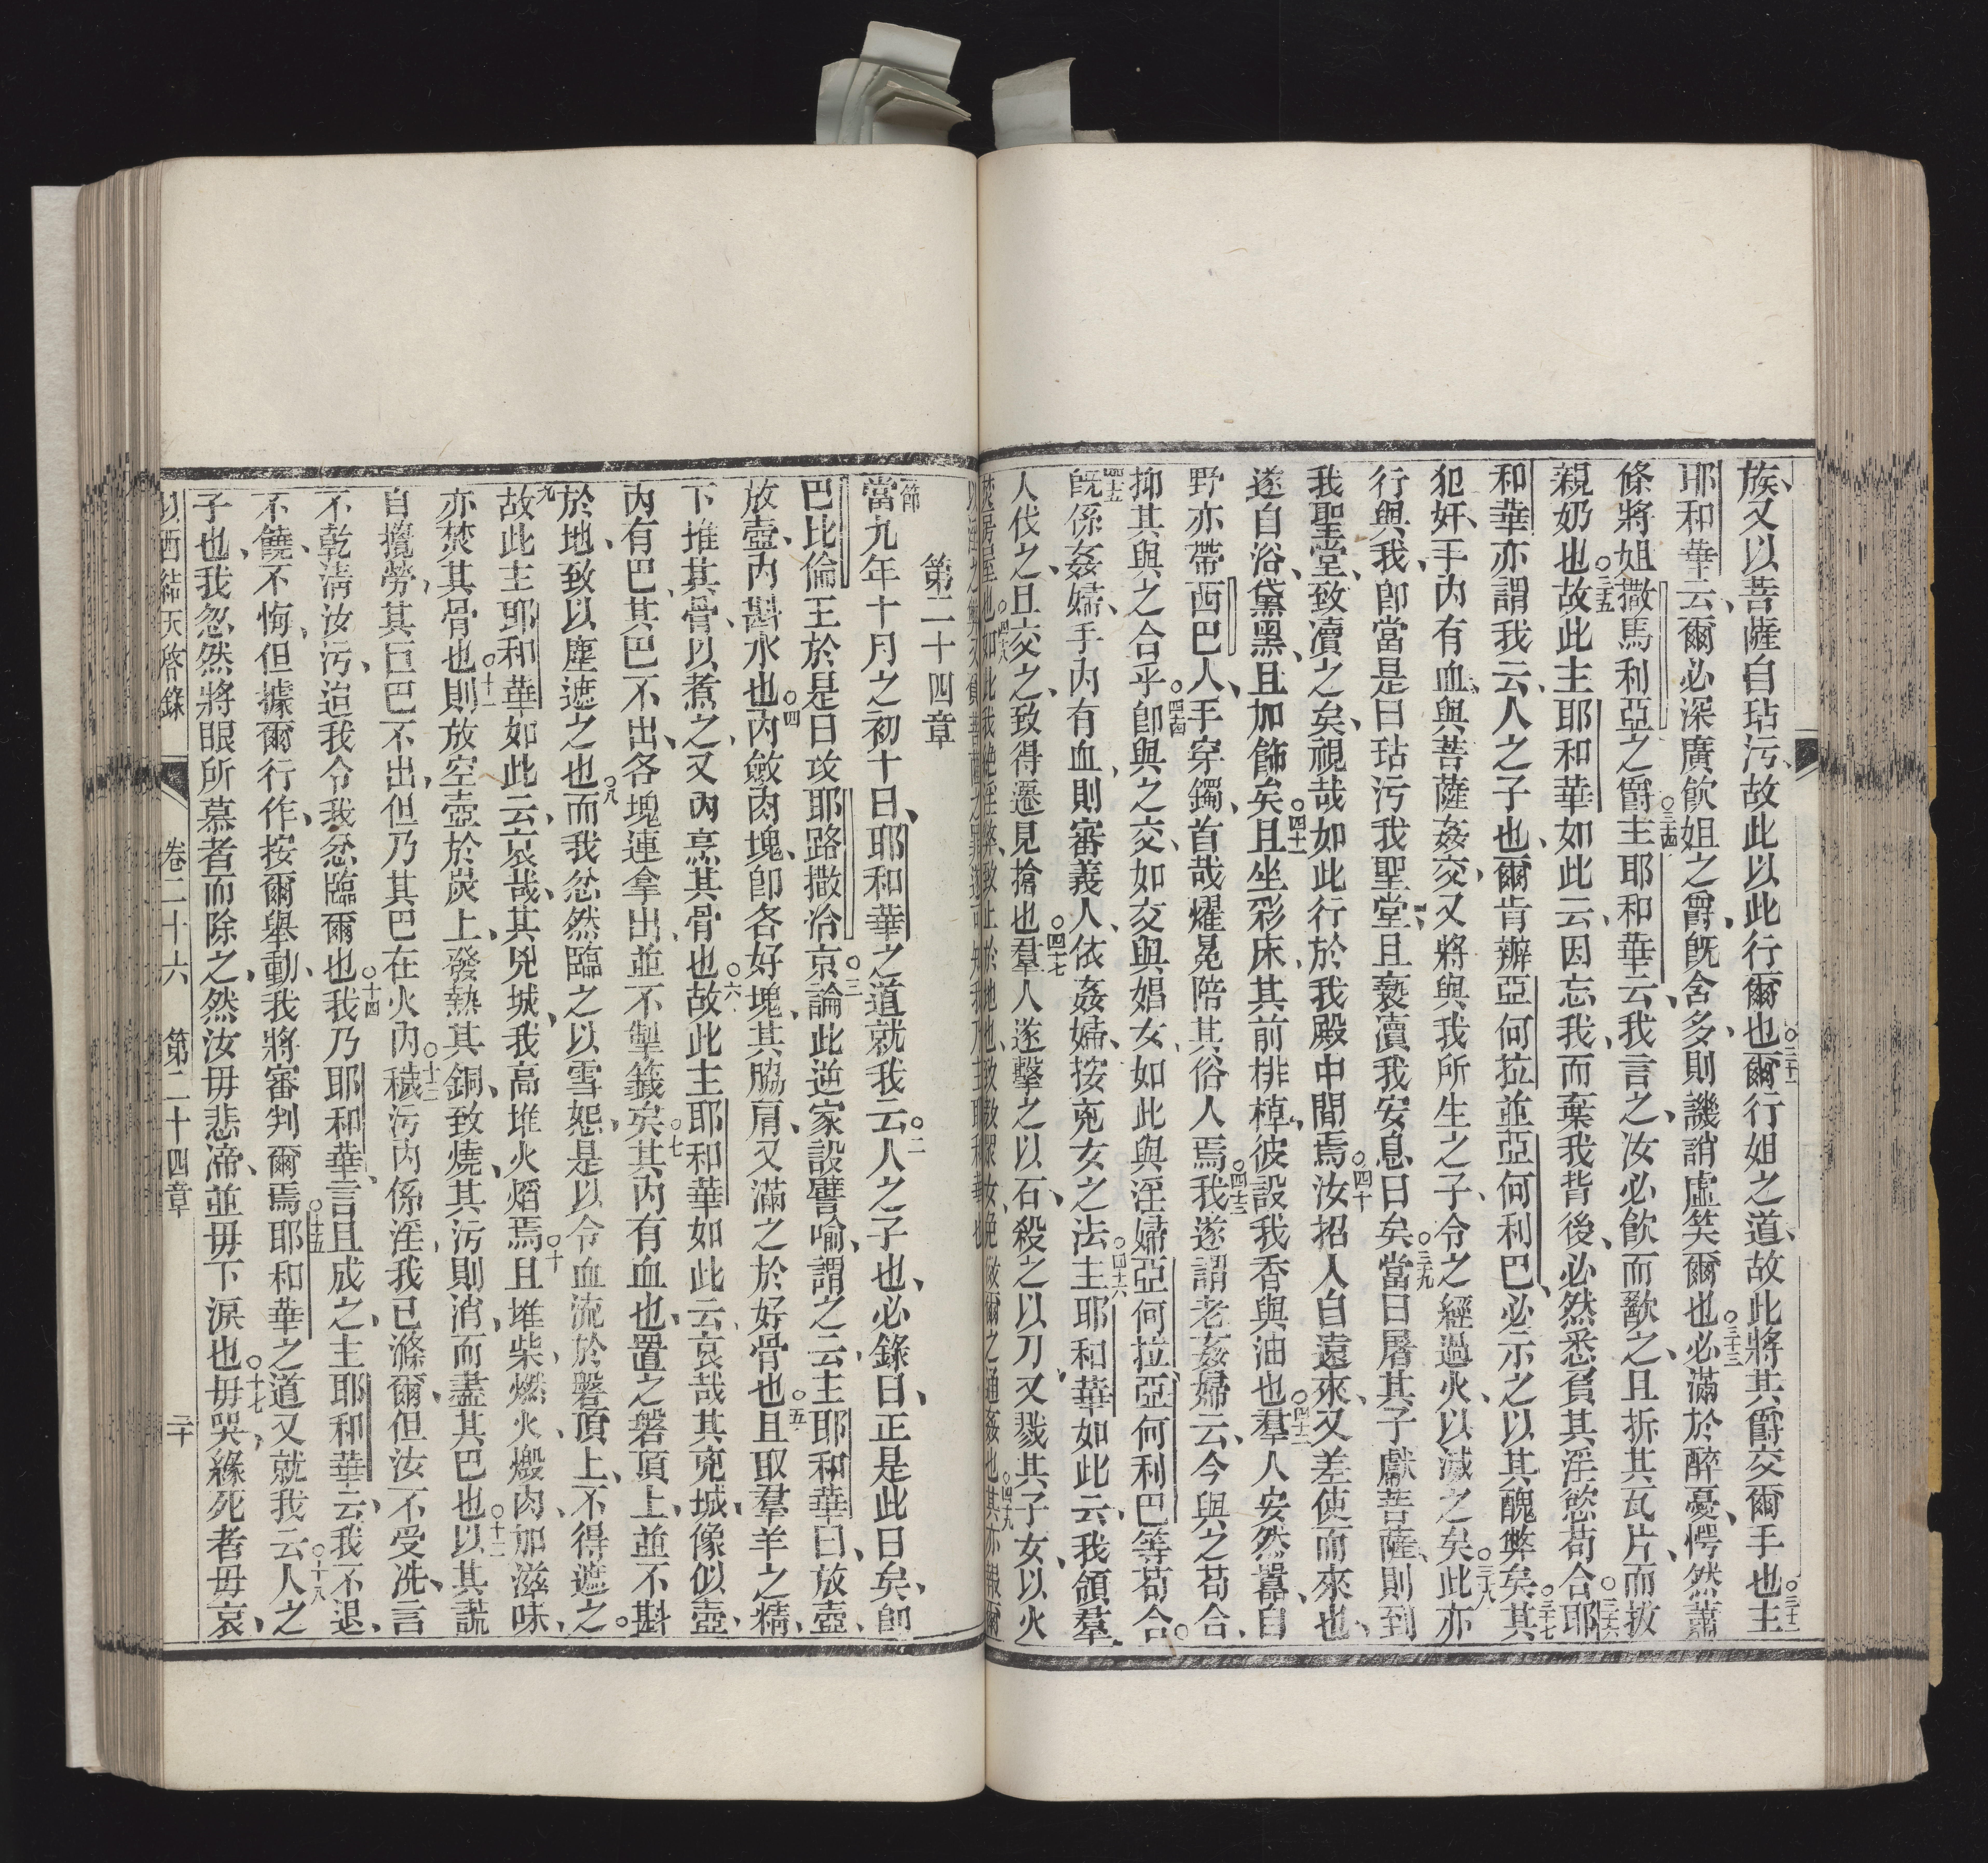 族、又以菩薩自玷污、故此以此行爾也○三十一爾行姐之道、故此將其爵交爾手也○三十二主
耶和華云、爾必深廣飲姐之爵、旣含多、則譏誚虛笑爾也○三十三必滿於醉憂、愕然蕭
條、將姐撒馬利亞之爵○三十四主耶和華云、我言之、汝必飲而歠之、且拆其瓦片、而拔
親奶也○三十五故此主耶和華如此云、因忘我、而棄我背後、必然悉負其淫慾苟合○三十六耶
和華亦謂我云、人之子也、爾肯辦亞何拉並亞何利巴、必示之以其醜弊矣○三十七其
犯奸、手內有血、與菩薩姦交、又將與我所生之子、令之經過火、以滅之矣○三十八此亦
行與我、卽當是日玷污我聖堂、且褻瀆我安息日矣○三十九當日屠其子獻菩薩、則到
我聖堂、致瀆之矣、視哉如此行於我殿中間焉○四十汝招人自遠來、又差使而來也、
遂自浴、黛黑、且加飾矣○四十一且坐彩床、其前排棹、彼設我香與油也○四十二羣人安然囂、自
野亦帶西巴人、手穿鐲、首哉耀冕陪其俗人焉○四十三我遂謂老姦婦云、今與之苟合、
抑其與之合乎○四十四卽與之交、如交與娼女、如此與淫婦亞何拉、亞何利巴等苟合○
四十五旣係姦婦、手內有血、則審義人、依姦婦、按兇女之法○四十六主耶和華如此云、我領羣
人伐之、且交之、致得遷見搶也○四十七羣人遂擊之以石、殺之以刀、又戮其子女、以火
焚房屋也○四十八如此我絕淫弊、致止於地也、致敎眾女、免效爾之通姦也○四十九其亦報爾
第二十四章
節當九年十月之初十日、耶和華之道就我云○二人之子也、必錄日、正是此日矣、卽
巴比倫王於是日攻耶路撒冷京○三論此逆家設譬喻、謂之云、主耶和華曰、放壺、
放壺、內斟水也○四內斂肉塊、卽各好塊、其脇肩、又滿之於好骨也○五且取羣羊之精、
下堆其骨、以煮之、又內烹其骨也○六故此主耶和華如此云、哀哉其兇城、像似壺、
內有巴、其巴不出、各塊連拿出、並不掣籤矣○七其內有血也、置之磐頂上、並不斟
於地、致以塵遮之也○八而我忿然臨之以雪恕、是以令血流於磐頂上、不得遮之○
九故此主耶和華如此云、哀哉、其兇城、我高堆火熖焉○十且堆柴、燃火、燬肉、加滋味、
亦焚其骨也○十一則放空壺於炭上、發熱其銅、致燒、其污則消、而盡其巴也○十二以其謊
自攬勞、其巨巴不出、但乃其巴在火內○十三穢污內係淫、我已滌爾、但汝不受洗、言
不乾淸汝污、迨我令我忿臨爾也○十四我乃耶和華、言且成之、主耶和華云、我不退、
不饒、不悔、但據爾行作、按爾舉動、我將審判爾焉○十五耶和華之道又就我云○十六人之
子也、我忽然將眼所慕者而除之、然汝毋悲啼、並毋下淚也○十七毋哭、緣死者毋哀、
以西結天啓錄 卷二十六 第二十四章 二十